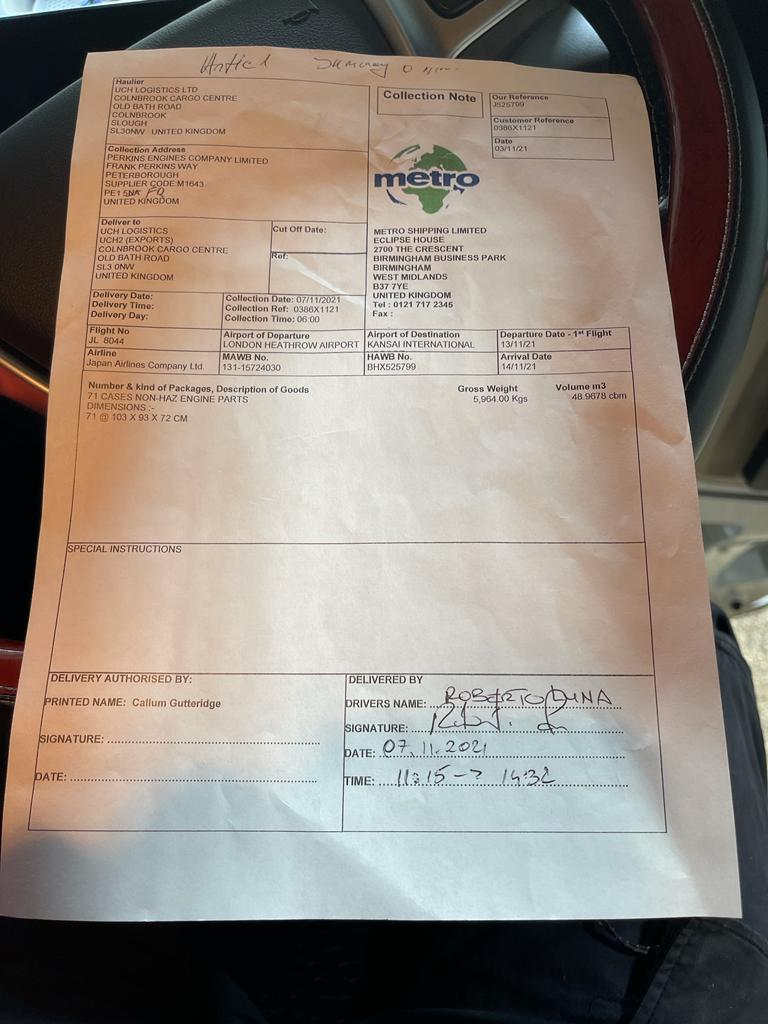 Collection Note
Haulier
UCH LOGISTICS LTD
COLNBROOK CARGO CENTRE
OLD BATH ROAD
COLNBROOK
SLOUGH
SL30NW UNITED KINGDOM
Our Reference
J525799
Customer Reference
0386X1121
Date
03/11/21
Collection Address
PERKINS ENGINES COMPANY LIMITED
FRANK PERKINS WAY
PETERBOROUGH
SUPPLIER CODE:M1643
PE1 5NA FQ
UNITED KINGDOM
metro
Deliver to
UCH LOGISTICS
UCH2 (EXPORTS)
COLNBROOK CARGO CENTRE
OLD BATH ROAD
SL3 0NW
UNITED KINGDOM
Cut Off Date:
Ref:
METRO SHIPPING LIMITED
ECLIPSE HOUSE
2700 THE CRESCENT
BIRMINGHAM BUSINESS PARK
BIRMINGHAM
WEST MIDLANDS
B37 7YE
UNITED KINGDOM
Tel : 0121 717 2345
Fax :
Delivery Date:
Delivery Time:
Delivery Day:
Collection Date: 07/11/2021
Collection Ref: 0386X1121
Collection Time: 06:00
Flight No
JL 8044
Airport of Departure
LONDON HEATHROW AIRPORT
Airport of Destination
KANSAI INTERNATIONAL
Departure Date - 1st Flight
13/11/21
Airline
Japan Airlines Company Ltd.
MAWB No.
131-15724030
HAWB No.
BHX525799
Arrival Date
14/11/21
Number & kind of Packages, Description of Goods Gross Weight Volume m3
71 CASES NON-HAZ ENGINE PARTS 5,964.00 Kgs 48.9678 cbm
DIMENSIONS :-
71 @ 103 X 93 X 72 CM
SPECIAL INSTRUCTIONS
DELIVERY AUTHORISED BY:
PRINTED NAME: Callum Gutteridge
SIGNATURE:
DATE:
DELIVERED BY
DRIVERS NAME: ROBERTO
SIGNATURE:
DATE: 07.11.2021
TIME: 11:15 -> 14:32